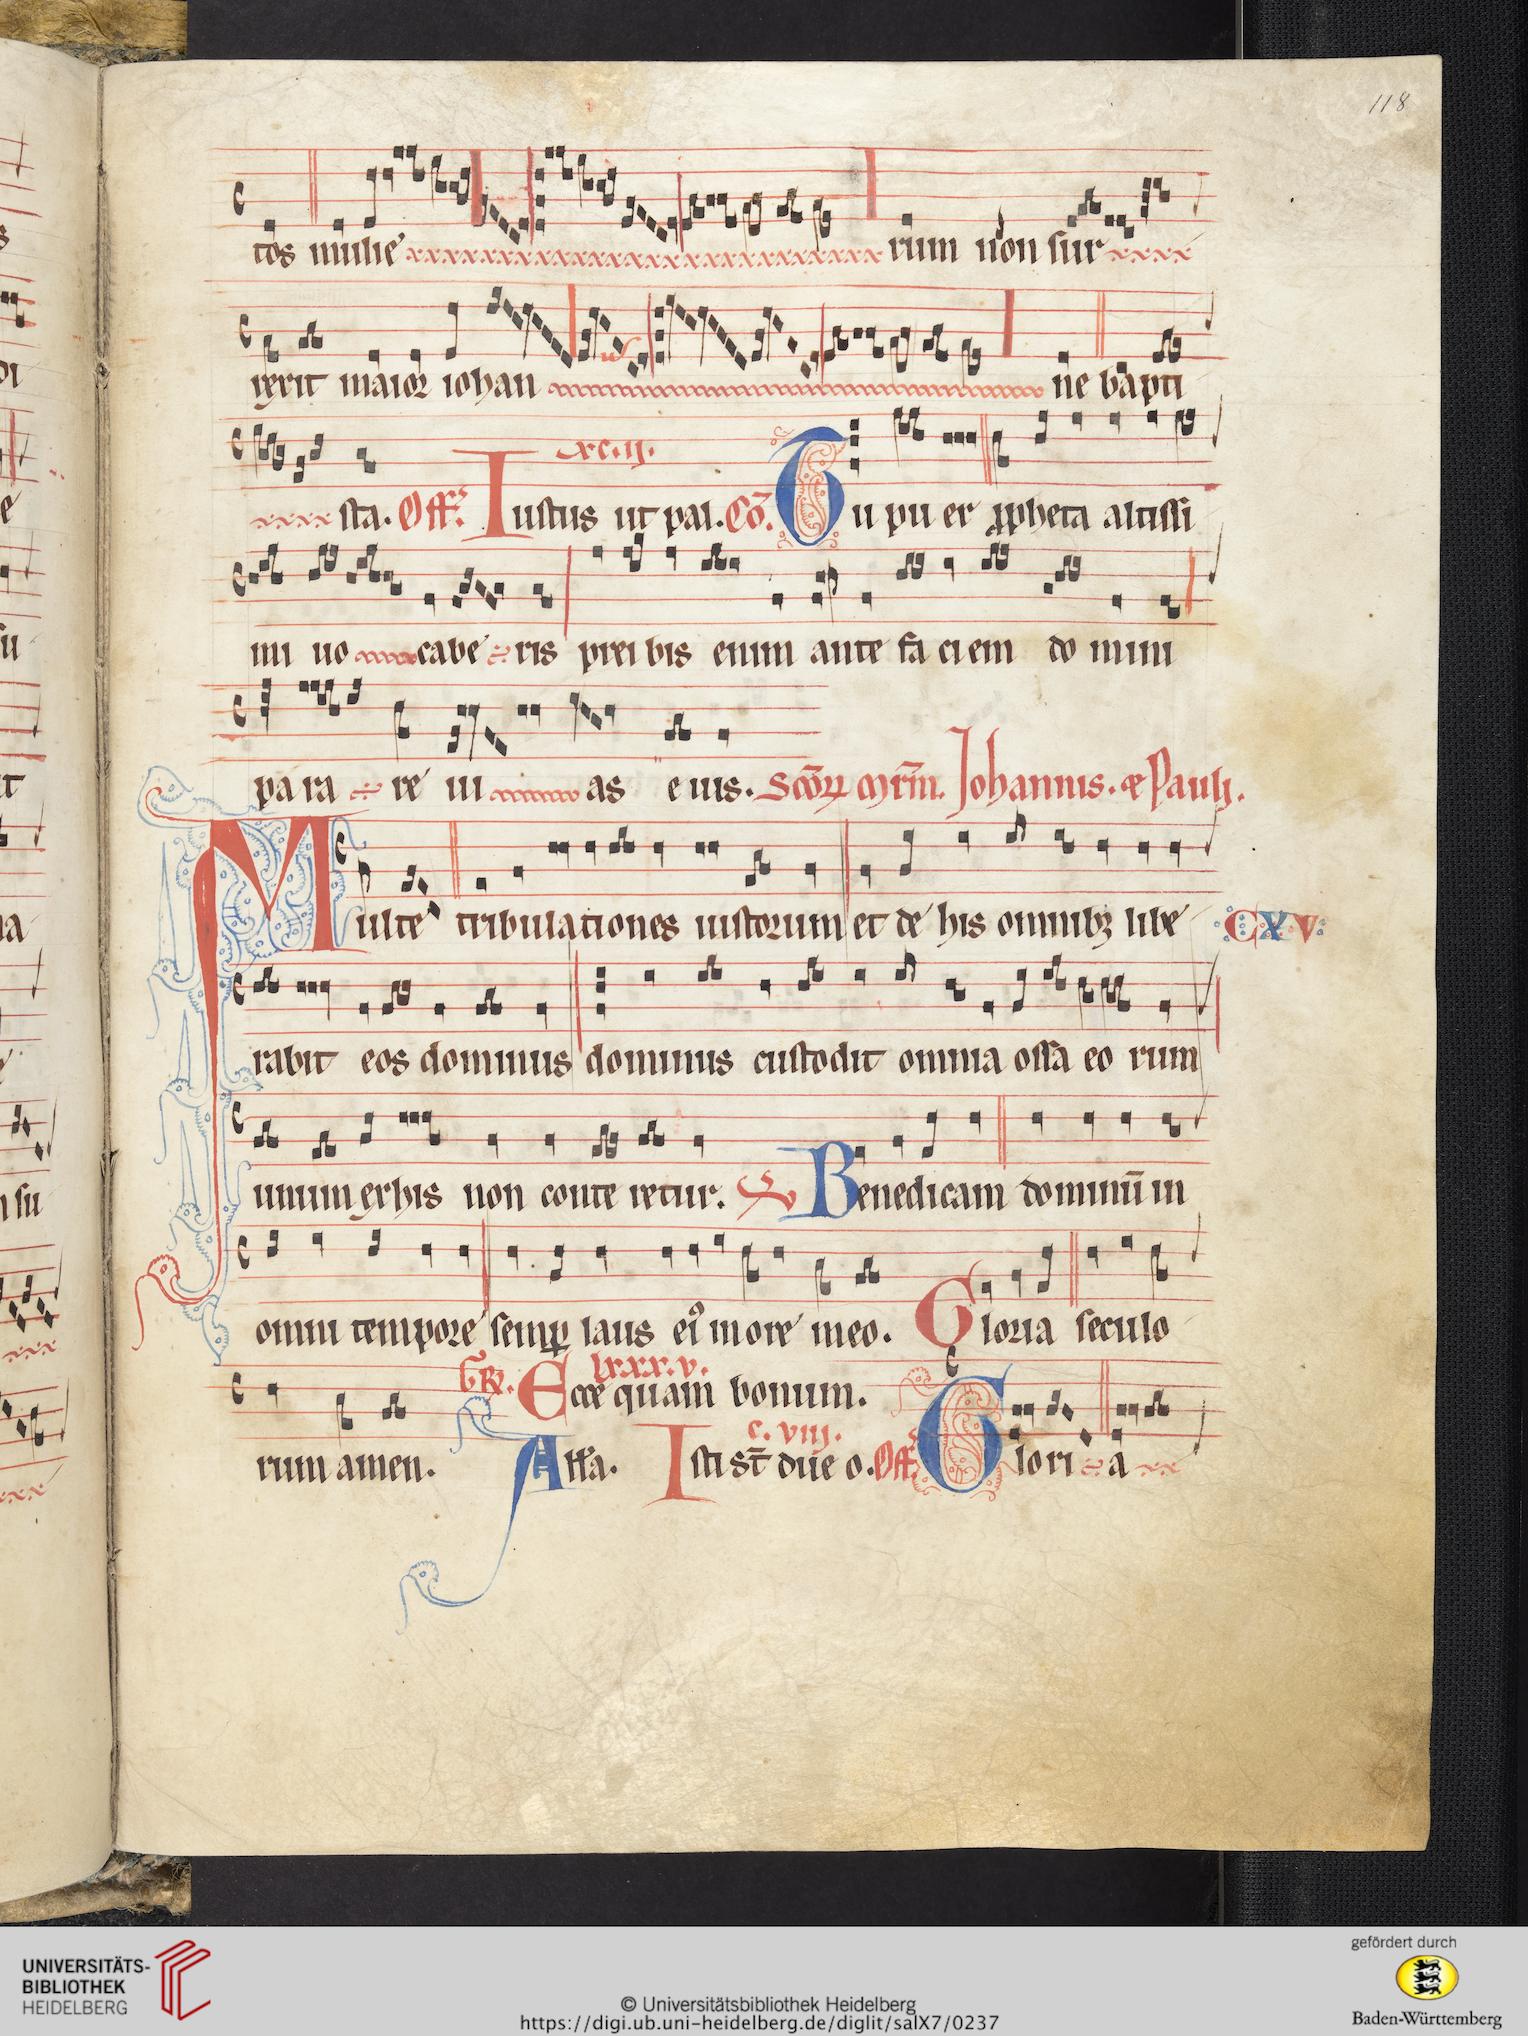 118
tos mulie rum non sur
rexit maior iohan ne bapti
xc.ij.
sta. Off. Iustus ut pal. Cō. Tu pu er ꝓpheta altissi
mi uo cabe ris prei bis enim ante fa ciem do mini
pa ra re ui as e ius. Scōꝝ mr̄m. Johannis. ⁊ Pauli.
Multe tribulationes iustorum et de his omnibꝫ libe CXV
rabit eos dominus dominus custodit omnia ossa eo rum
unum ex his non conte retur. Ps Benedicam dominū in
omni tempore semꝑ laus eiꝰ in ore meo. Gloria seculo
lxxx.v.
GR. Ecce quam bonum.
c. viij.
rum amen. All'a. Isti st̄ due o. Off. Glori a
UNIVERSITÄTS-
BIBLIOTHEK
HEIDELBERG
© Universitätsbibliothek Heidelberg
https://digi.ub.uni-heidelberg.de/diglit/salX7/0237
gefördert durch
Baden-Württemberg